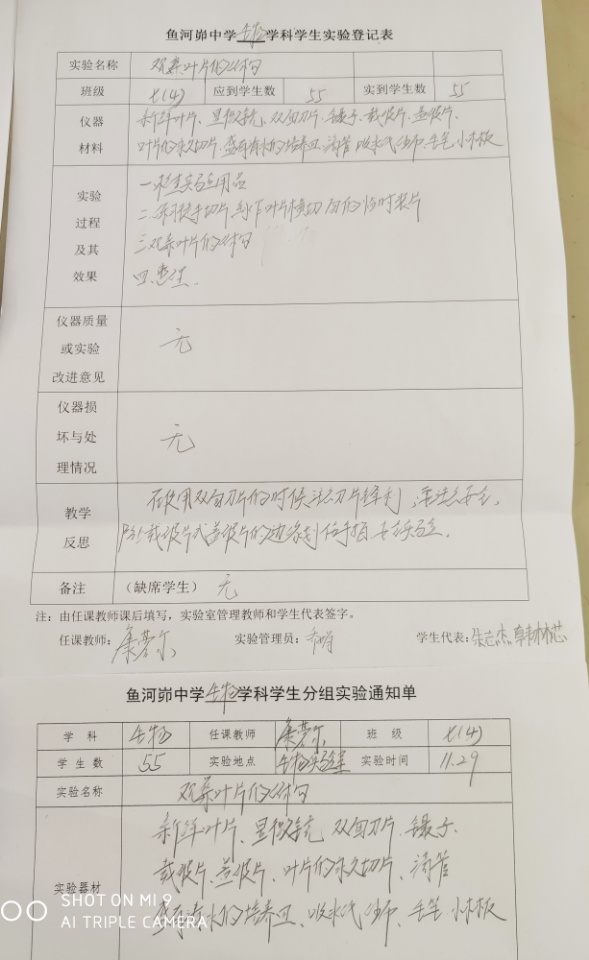 鱼河峁中学生物学科学生实验登记表
实验名称 观察叶片的结构
班级 七(4) 应到学生数 55 实到学生数 55
仪器材料 新鲜叶片、显微镜、双面刀片、镊子、载玻片、盖玻片、
叶片的永久切片、盛有清水的培养皿、滴管、吸水纸、毛笔、小木板
实验过程及其效果
一、检查实验用品
二、练习徒手切片,制作叶片横切面的临时装片
三、观察叶片的结构
四、整理.
仪器质量或实验改进意见 无
仪器损坏与处理情况 无
教学反思 在使用双面刀片的时候刀片锋利,要注意安全,
防止载玻片或盖玻片的边缘划伤手指
备注 (缺席学生) 无
注:由任课教师课后填写,实验室管理教师和学生代表签字。
任课教师: 实验管理员: 学生代表:
鱼河峁中学生物学科学生分组实验通知单
学科 生物 任课教师 班级 七(4)
学生数 55 实验地点 生物实验室 实验时间 11.29
实验名称 观察叶片的结构
实验器材 新鲜叶片、显微镜、双面刀片、镊子、
载玻片、盖玻片、叶片的永久切片、滴管
盛有清水的培养皿、吸水纸、毛笔、小木板
SHOT ON MI 9
AI TRIPLE CAMERA